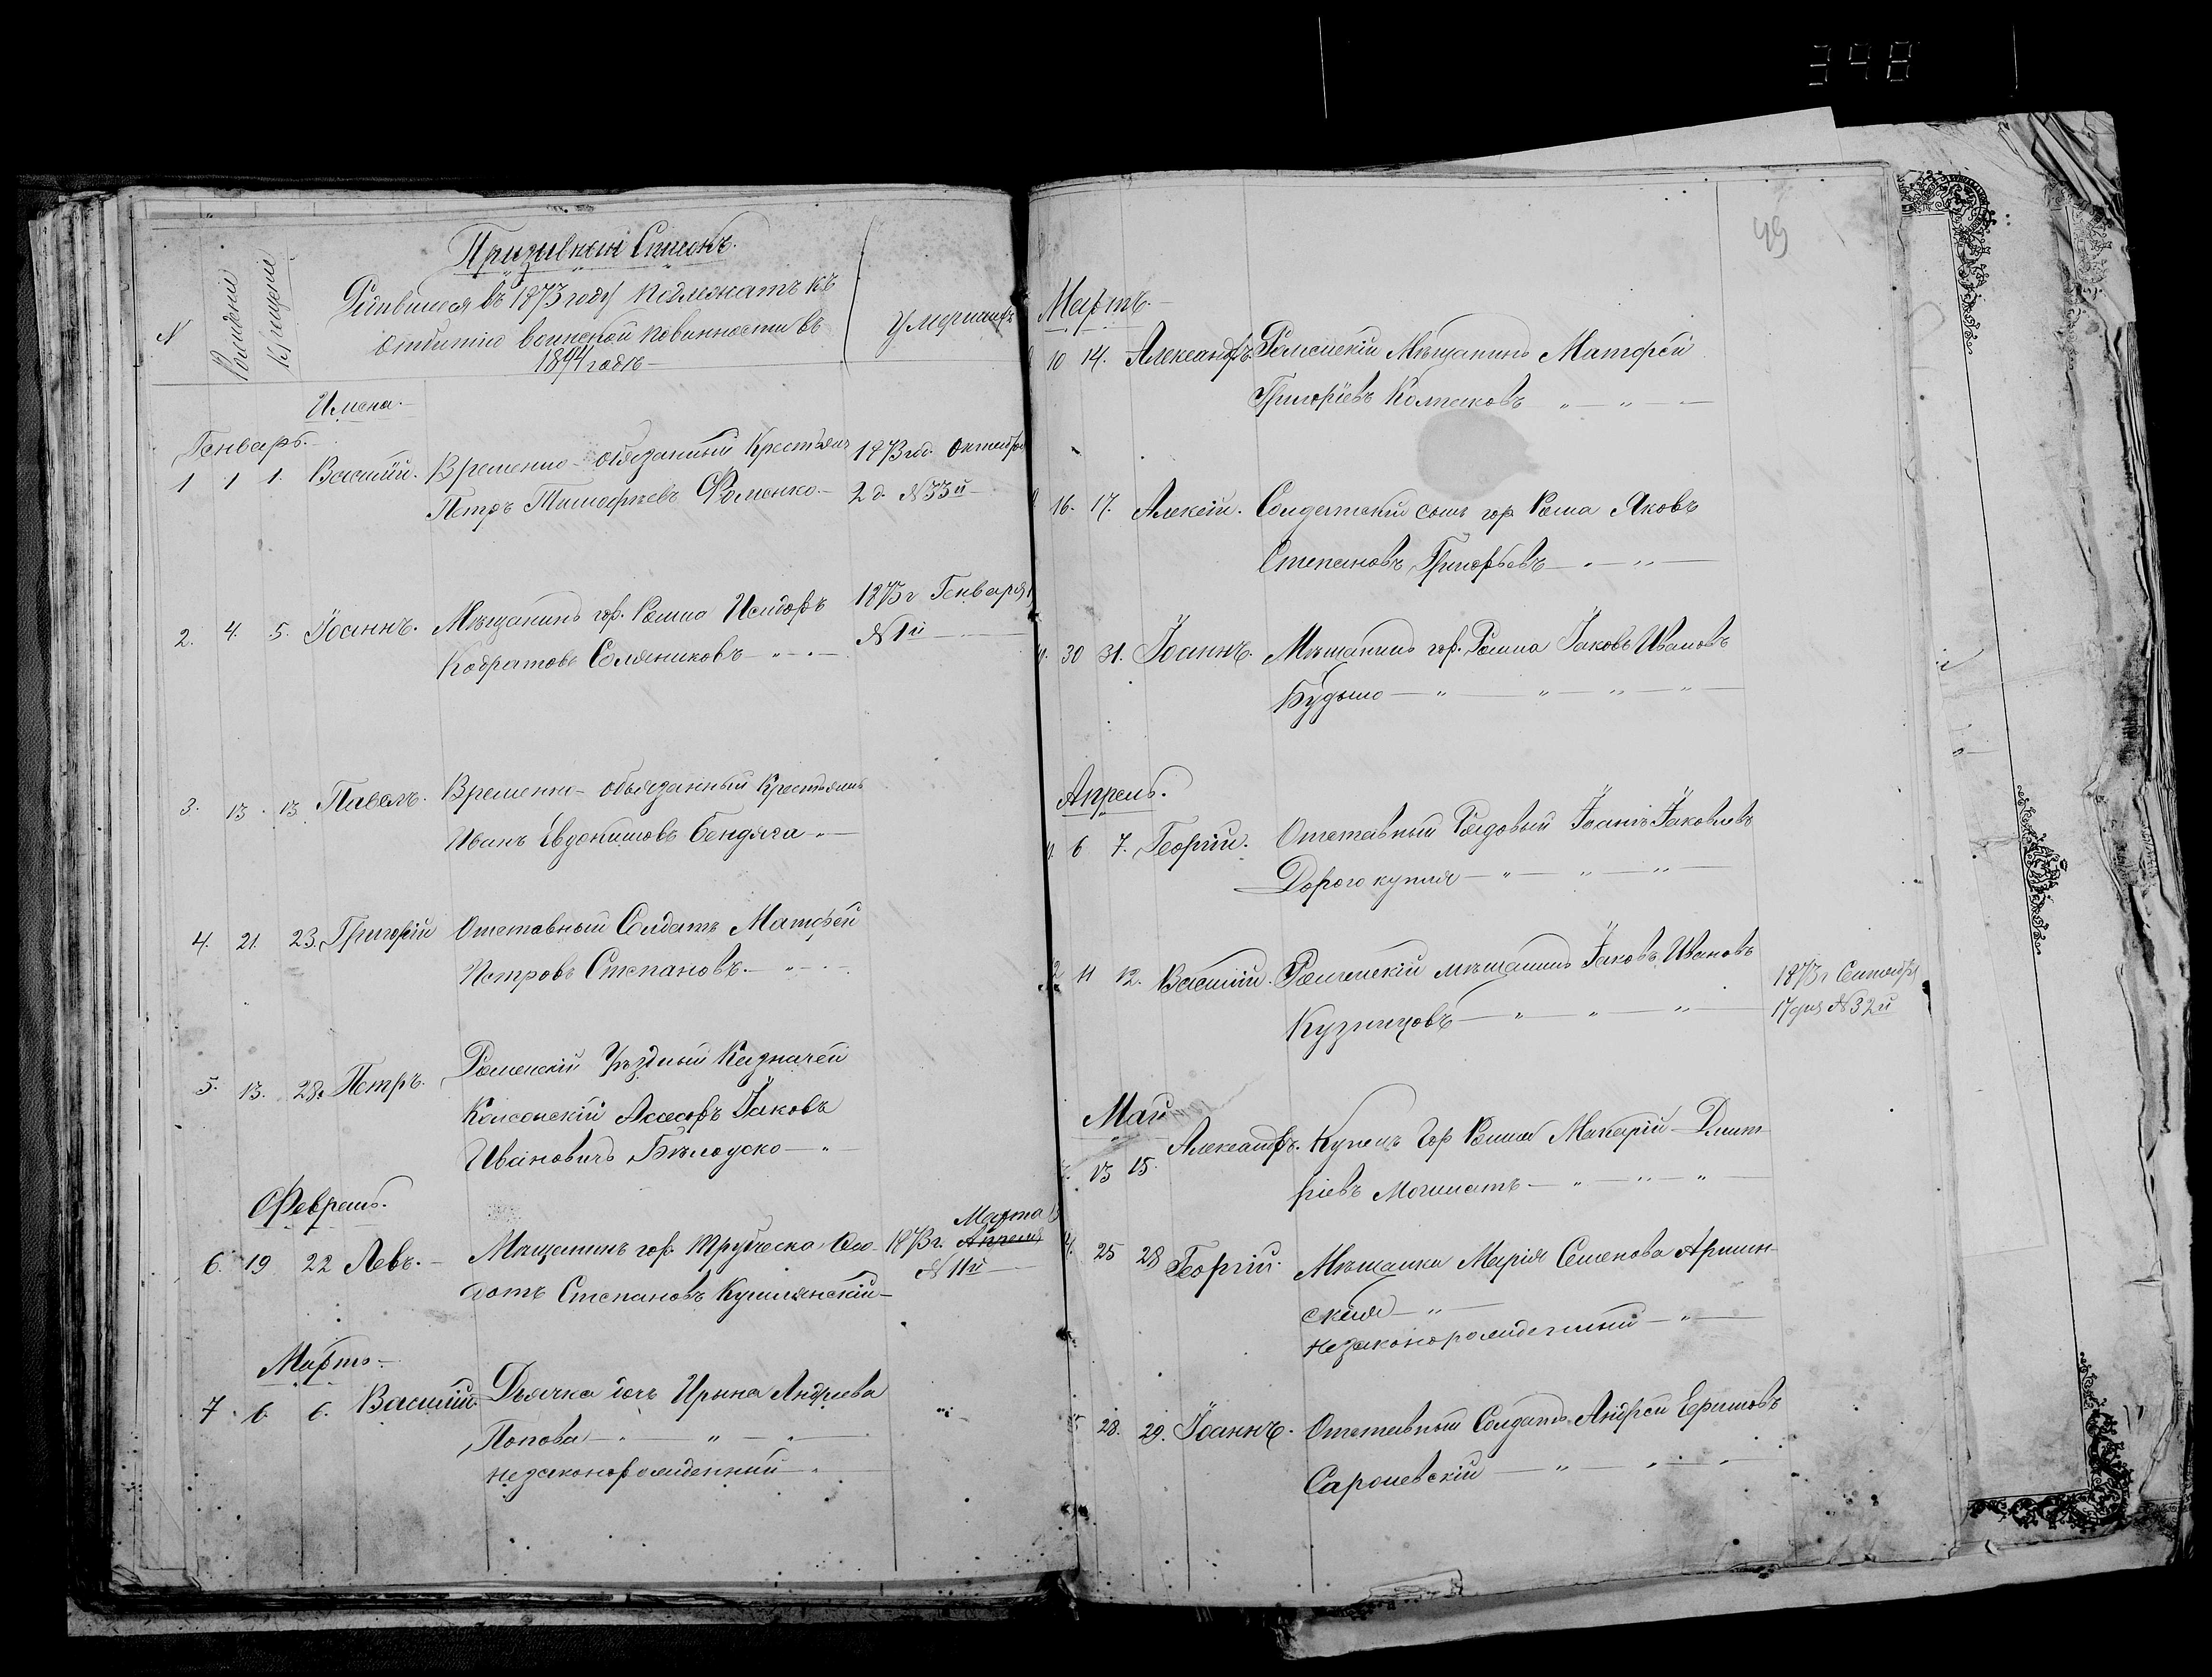 398
Призивный Списокъ.
N
Рождение
Крещение
Родившиеся въ 1873 году подлежатъ къ
отбитию воинской повинности въ
1894 годѣ
Умершихъ
Имена.
Генварь.
1 1 1. Василий. Временно-обязанный Крестьянъ 1873 год. Октября
Петръ Тимофѣевъ Фоменко. 2 д. N 33й
2. 4. 5. Іоаннъ. Мѣщанинъ гор. Ромна Исидоръ 1873 г Генваря
Кодратовъ Соляниковъ N 1й
3. 13. 13. Павелъ. Временно-обьязанный Крестьянинъ
Иванъ Евдокимовъ Бендяга
4. 21. 23. Григорій Отставный Солдатъ Матфей
Петровъ Степановъ.
5. 13. 28. Петръ. Роменский Уѣздный Казначей
Асесоръ Іаковъ
Ивановичъ Бѣлоуско
Февраль.
6. 19 22 Левъ. Мѣщанинъ гор. Трубчевска Ѳео- 1873 г. Марта Апреля
дотъ Степановъ N 11й
Мартъ.
7 6. 6. Василій. Дьячка дочь Ирына Андреева
Попова
незаконорожденный
49
Мартъ.
10 14. Александръ. Роменский Мѣщанинъ Матфей
Григоріевъ Колпаковъ
16. 17. Алексій. Солдатский сынъ гор. Ромна Яковъ
Степановъ Григорьевъ
30 31. Іоаннъ. Мѣщанинъ гор. Ромна Іаковъ Ивановъ
Будымо
Апрель.
6 7. Георгій. Отставный Рядовый Іоанъ Іаковлевъ
Дорогокупля
11 12. Василій. Роменский мѣщанинъ Іаковъ Ивановъ 1873 г Сентября
Кузницовъ 17 дня N 32й
Май
13 15. Александръ. Купецъ Гор Ромна Макарий Дмит-
ріевъ Могилатъ
25 28 Георгій. Мѣщанка Марія Семенова
ская
незаконорожденный
28. 29. Іоаннъ. Отставный Солдатъ Андрей Ефимовъ
Сарошевский